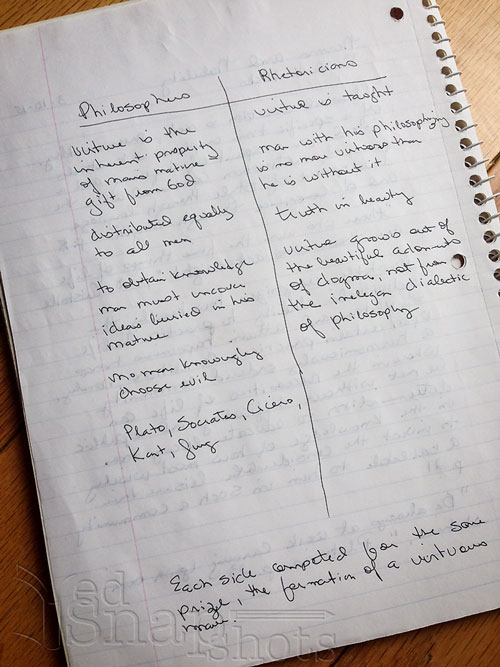 Philosophers
virtue is the
inherent property
of mans nature &
gift from God
distributed equally
to all men
to obtain knowledge
man must uncover
ideas buried in his
nature
no man knowingly
choose evil
Plato, Socrates, Cicero,
Kant, Jung
Rhetoricians
virtue is taught
man with his philosophizing
is no more virtuous than
he is without it
truth in beauty
virtue grows out of
the beautiful
of dogma, not from
the dialectic
of philosophy
Each side competed for the same
prize, the formation of a virtuous
man.
ed
Snapshots